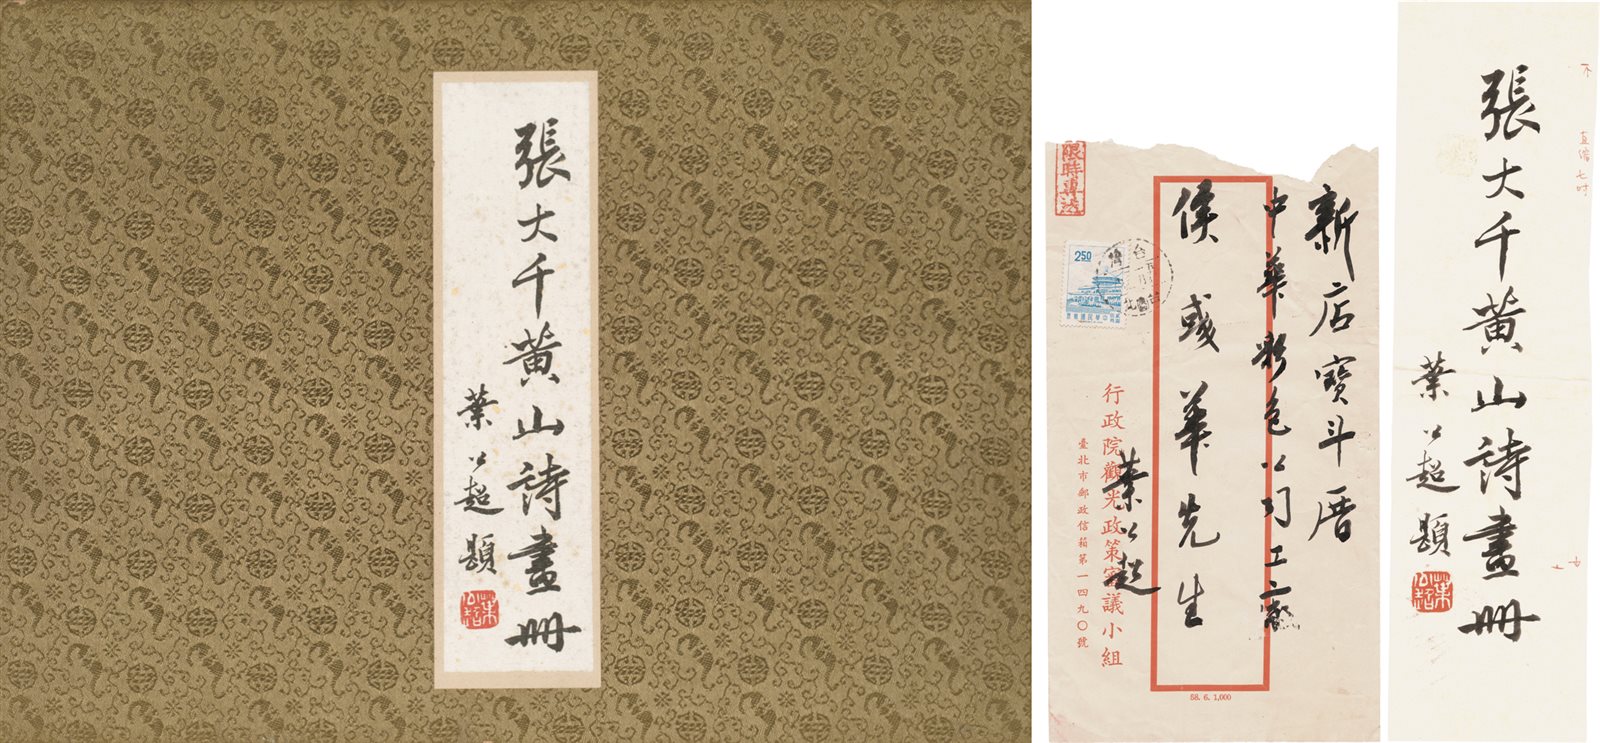 張大千黃山詩畫冊
葉公超題
葉公超
限時專送
新店寶斗厝
中華彩色公司工廠
侯彧華先生
葉公超
2.50
中華民國郵票
台灣
台北
行政院觀光政策審議小組
臺北市郵政信箱第一四九〇號
58. 6. 1,000
張大千黃山詩畫冊
葉公超題
葉公超
不
直縮七吋